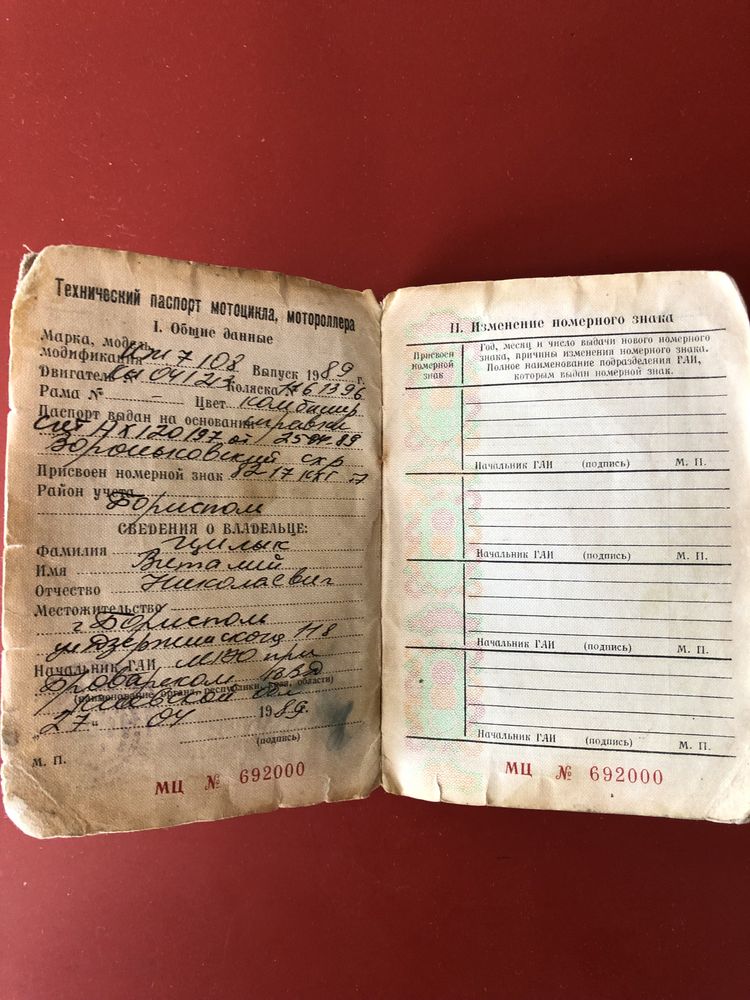 Технический паспорт мотоцикла, мотороллера
I. Общие данные
Марка, модель,
модификация 7 108 Выпуск 1989 г.
Двигатель 04127 Коляска № 1961996
Рама № — Цвет комбинир
Паспорт выдан на основании справки
счет АХ120197 от 25 04 89
Вороньковский схр
Присвоен номерной знак 8217
Район учета
Борисполь
СВЕДЕНИЯ О ВЛАДЕЛЬЦЕ:
Фамилия Цилык
Имя Виталий
Отчество Николаевич
Местожительство
г Борисполь
ул Дзержинского 118
Начальник ГАИ МРЭО при
Броварском
(наименование органа, республики, края, области)
обл
„27“ 04 1989.
(подпись)
М. П.
МЦ № 692000
II. Изменение номерного знака
Присвоен номерной знак
Год, месяц и число выдачи нового номерного
знака, причины изменения номерного знака.
Полное наименование подразделения ГАИ,
которым выдан номерной знак.
Начальник ГАИ (подпись) М. П.
Начальник ГАИ (подпись) М. П.
Начальник ГАИ (подпись) М. П.
Начальник ГАИ (подпись) М. П.
МЦ № 692000